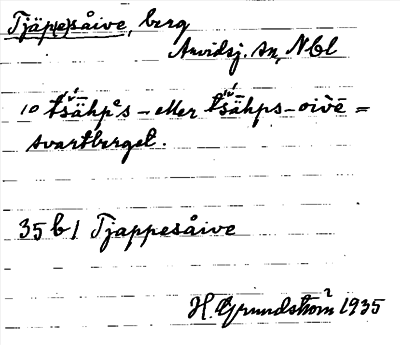 Tjäp(e)såive, berg
Arvidsj. sn, Nbl
10 tsähpᵉs- eller tsähps-oivē =
svartberget.
35 b1 Tjappesåive
H. Grundström 1935